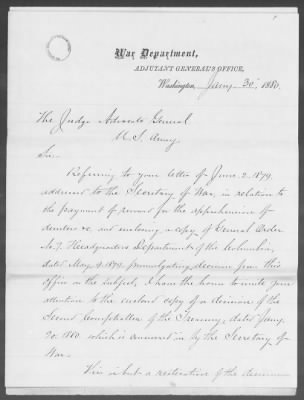 War Department,
ADJUTANT GENERAL'S OFFICE,
Washington, Jany. 30, 1880.
The Judge Advocate General
U.S. Army.
Sir:
Referring to your letter of June 2, 1879,
addressed to the Secretary of War, in relation
to the payment of reward for the apprehension of
deserters &c. and enclosing a copy of General Order
No. 7, Headquarters Department of the Columbia,
dated May 9, 1879, promulgating decision from this
office on the subject, I have the honor to invite your
attention to the enclosed copy of a decision of the
Second Comptroller of the Treasury, dated Jany.
20, 1880 which is concurred in by the Secretary of
War.
This is but a restoration of the decision